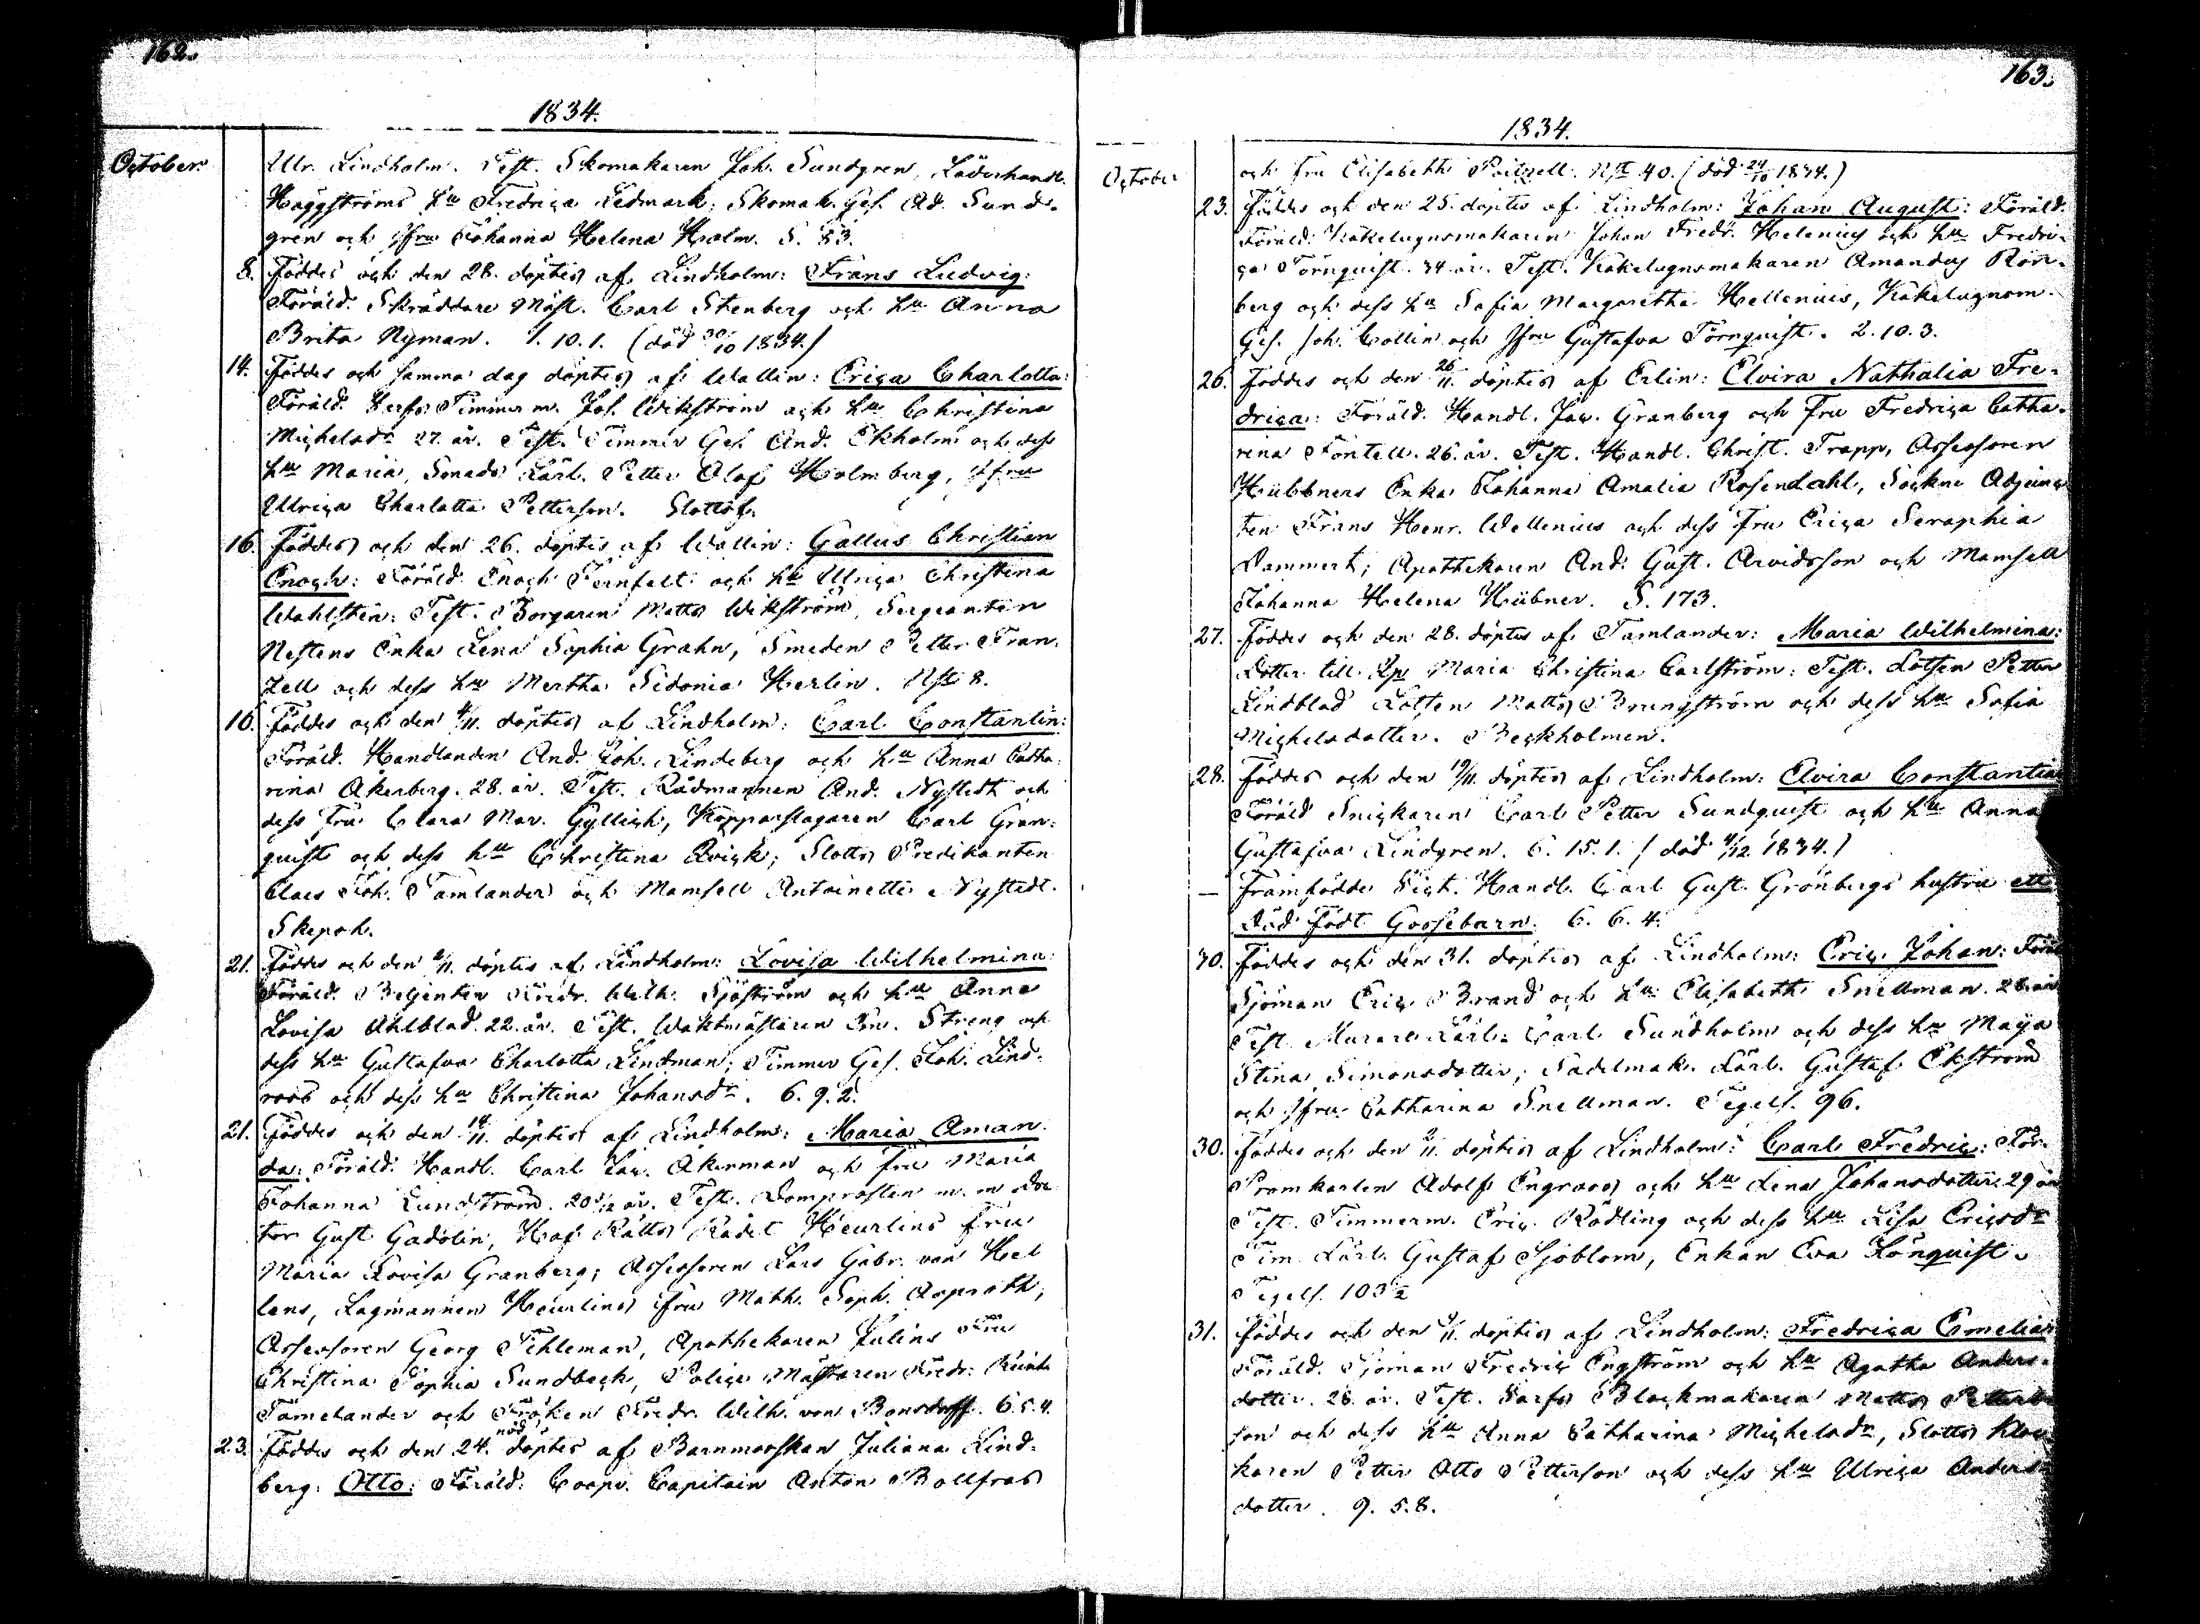 162.
1834.
October.
Ulr. Lindholm. Test. Skomakaren Joh. Sundgren, Läderhandl.
Häggströms hu Fredrica Ledmark, Skomak. Ges. Ad. Sund-
gren och Jfru Johanna Helena Holm. S. 83.
8. Föddes och den 28. döptes af Lindholm: Frans Ludvig:
Föräld. Skräddare Mäst. Carl Stenberg och hu Anna
Brita Nyman. 1. 10. 1. (död 30/10 1834.)
14. Föddes och samma dag döptes af Wallin: Erica Charlotta:
Föräld. Timmerm. Joh. Wikström och hu Christina
Michelsdr 27. år. Test. Timmer Ges. And. Ekholm och dess
hu Maria, Lärl. Petter Olof Holmberg, Jfru
Ulrica Charlotta Petterson. Slottsf.
16. Föddes och den 26. döptes af Wallin: Gallus Christian
Enoch: Föräld. Enoch Fernfelt och hu Ulrica Christina
Wahlsten: Test. Borgaren Matts Wikström, Sergeanten
Nestens Enka Lena Sophia Grahn, Smeden Petter Fran-
zell och dess hu Mertha Sidonia Herlin. Nst 8.
16. Föddes och den 4/11. döptes af Lindholm: Carl Constantin:
Föräld. Handlanden And. Joh. Lindeberg och hu Anna Catha-
rina Åkerberg. 28. år. Test. Rådmannen And. Nystedt och
dess fru Clara Mar. Gyllich, Kopparslagaren Carl Gran-
quist och dess hu Christina Qvick; Slotts Predikanten
Claes Joh. Tamlander och Mamsell Antoinette Nystedt.
Skepsh.
21. Föddes och den 2/11. döptes af Lindholm: Lovisa Wilhelmina:
Föräld. Betjenten Fredr. Wilh. Sjöström och hu Anna
Lovisa Ahlblad. 22. år. Test. Waktmästaren Em. Streng och
dess hu Gustafva Charlotta Lindman; Timmer Ges. Joh. Lind-
roos och dess hu Christina Johansdr. 6. 9. 2.
21. Föddes och den 18/11. döptes af Lindholm: Maria Aman-
da: Föräld. Handl. Carl Jac. Åkerman och fru Maria
Johanna Lundström. 20 år. Test. Domprosten m. m. Doc-
tor Gust Gadolin, Hof Rätts Rådet Heurlins fru
Maria Lovisa Granberg; Assessoren Lars Gabr. von Hel
lens, Lagmannen Heurlins fru Math. Soph. Asproth,
Assessoren Georg Tihleman, Apothekaren Julins Fru
Christina Sophia Sundbeck, Police Mästaren Fredr. Reinh.
Tamelander och Fröken Fredr. Wilh. von Bonsdorff. 6. 5. 4.
23. Föddes och den 24. nöd döptes af Barnmorskan Juliana Lind-
berg: Otto: Föräld: Coopv. Capitain Anton Bollfras
163.
1834.
October
och fru Elisabeth. Nst 40. (död 24/10 1834.)
23. Föddes och den 25. döptes af Lindholm: Johan August: Föräld.
Föräld: Kakelugnsmakaren Johan Fredr. Helenius och hu Fredri-
ca Törnquist. 34 år. Test. Kakelugnsmakaren Amandus Rön-
berg och dess hu Sofia Margaretha Hellenius, Kakelugnsm.
Ges. Joh. Collin och Jfru Gustafva Törnquist. 2. 10. 3.
26. Föddes och den 26/11. döptes af Erlin: Elvira Nathalia Fre-
drica: Föräld. Handl. Jac. Granberg och Fru Fredrica Catha-
rina Fontell. 26. år. Test. Handl. Christ. Trapp, Assessoren
Hübbners Enka Johanna Amalia Rosendahl, Sockne Adjunc
ten Frans Henr. Wellenius och dess Fru Erica Seraphia
Dammert, Apothekaren And. Gust. Arvidsson och Mamsell
Johanna Helena Hübner. S. 173.
27. Föddes och den 28. döptes af Tamlander: Maria Wilhelmina:
Dotter till Maria Christina Carlström: Test. Lotsen Petter
Lindblad Lotsen Matts Brunström och dess hu Sofia
Michelsdotter. Beckholmen.
28. Föddes och den 19/11. döptes af Lindholm: Elvira Constantia
Föräld Snickaren Carl Petter Sundquist och hu Anna
Gustafva Lindgren. 6. 15. 1. (död 4/12 1834.)
— Framfödde Handl. Carl Gust. Grönbergs hustru ett
död födt Gossebarn. 6. 6. 4.
30. Föddes och den 31. döptes af Lindholm: Eric Johan:
Sjöman Eric Brand och hu Elisabeth Snellman. 28. år
Test. Murare Lärl. Carl Sundholm och dess hu Maja
Stina Simonsdotter; Sadelmak. Lärl. Gustaf Ekström
och Jfru Catharina Snellman. Tegels. 96.
30. Föddes och den 2/11. döptes af Lindholm: Carl Fredric: För.
Promkarlen Adolf Engroos och hu Lena Johansdotter. 29 år
Test. Timmerm. Eric Rödling och dess hu Lisa Ericsdr
Tim. Lärl. Gustaf Sjöblom, Enkan Eva Lönquist.
Tegels. 103
31. Föddes och den 9/11. döptes af Lindholm: Fredrica Emelia:
Föräld. Sjöman Fredric Engström och hu Agatha Anders-
dotter. 26. år. Test. Blockmakaren Matts Petter
son och dess hu Anna Catharina Michelsdr, Slotts Kloc
karen Petter Otto Petterson och dess hu Ulrica Anders
dotter. 9. 5. 8.